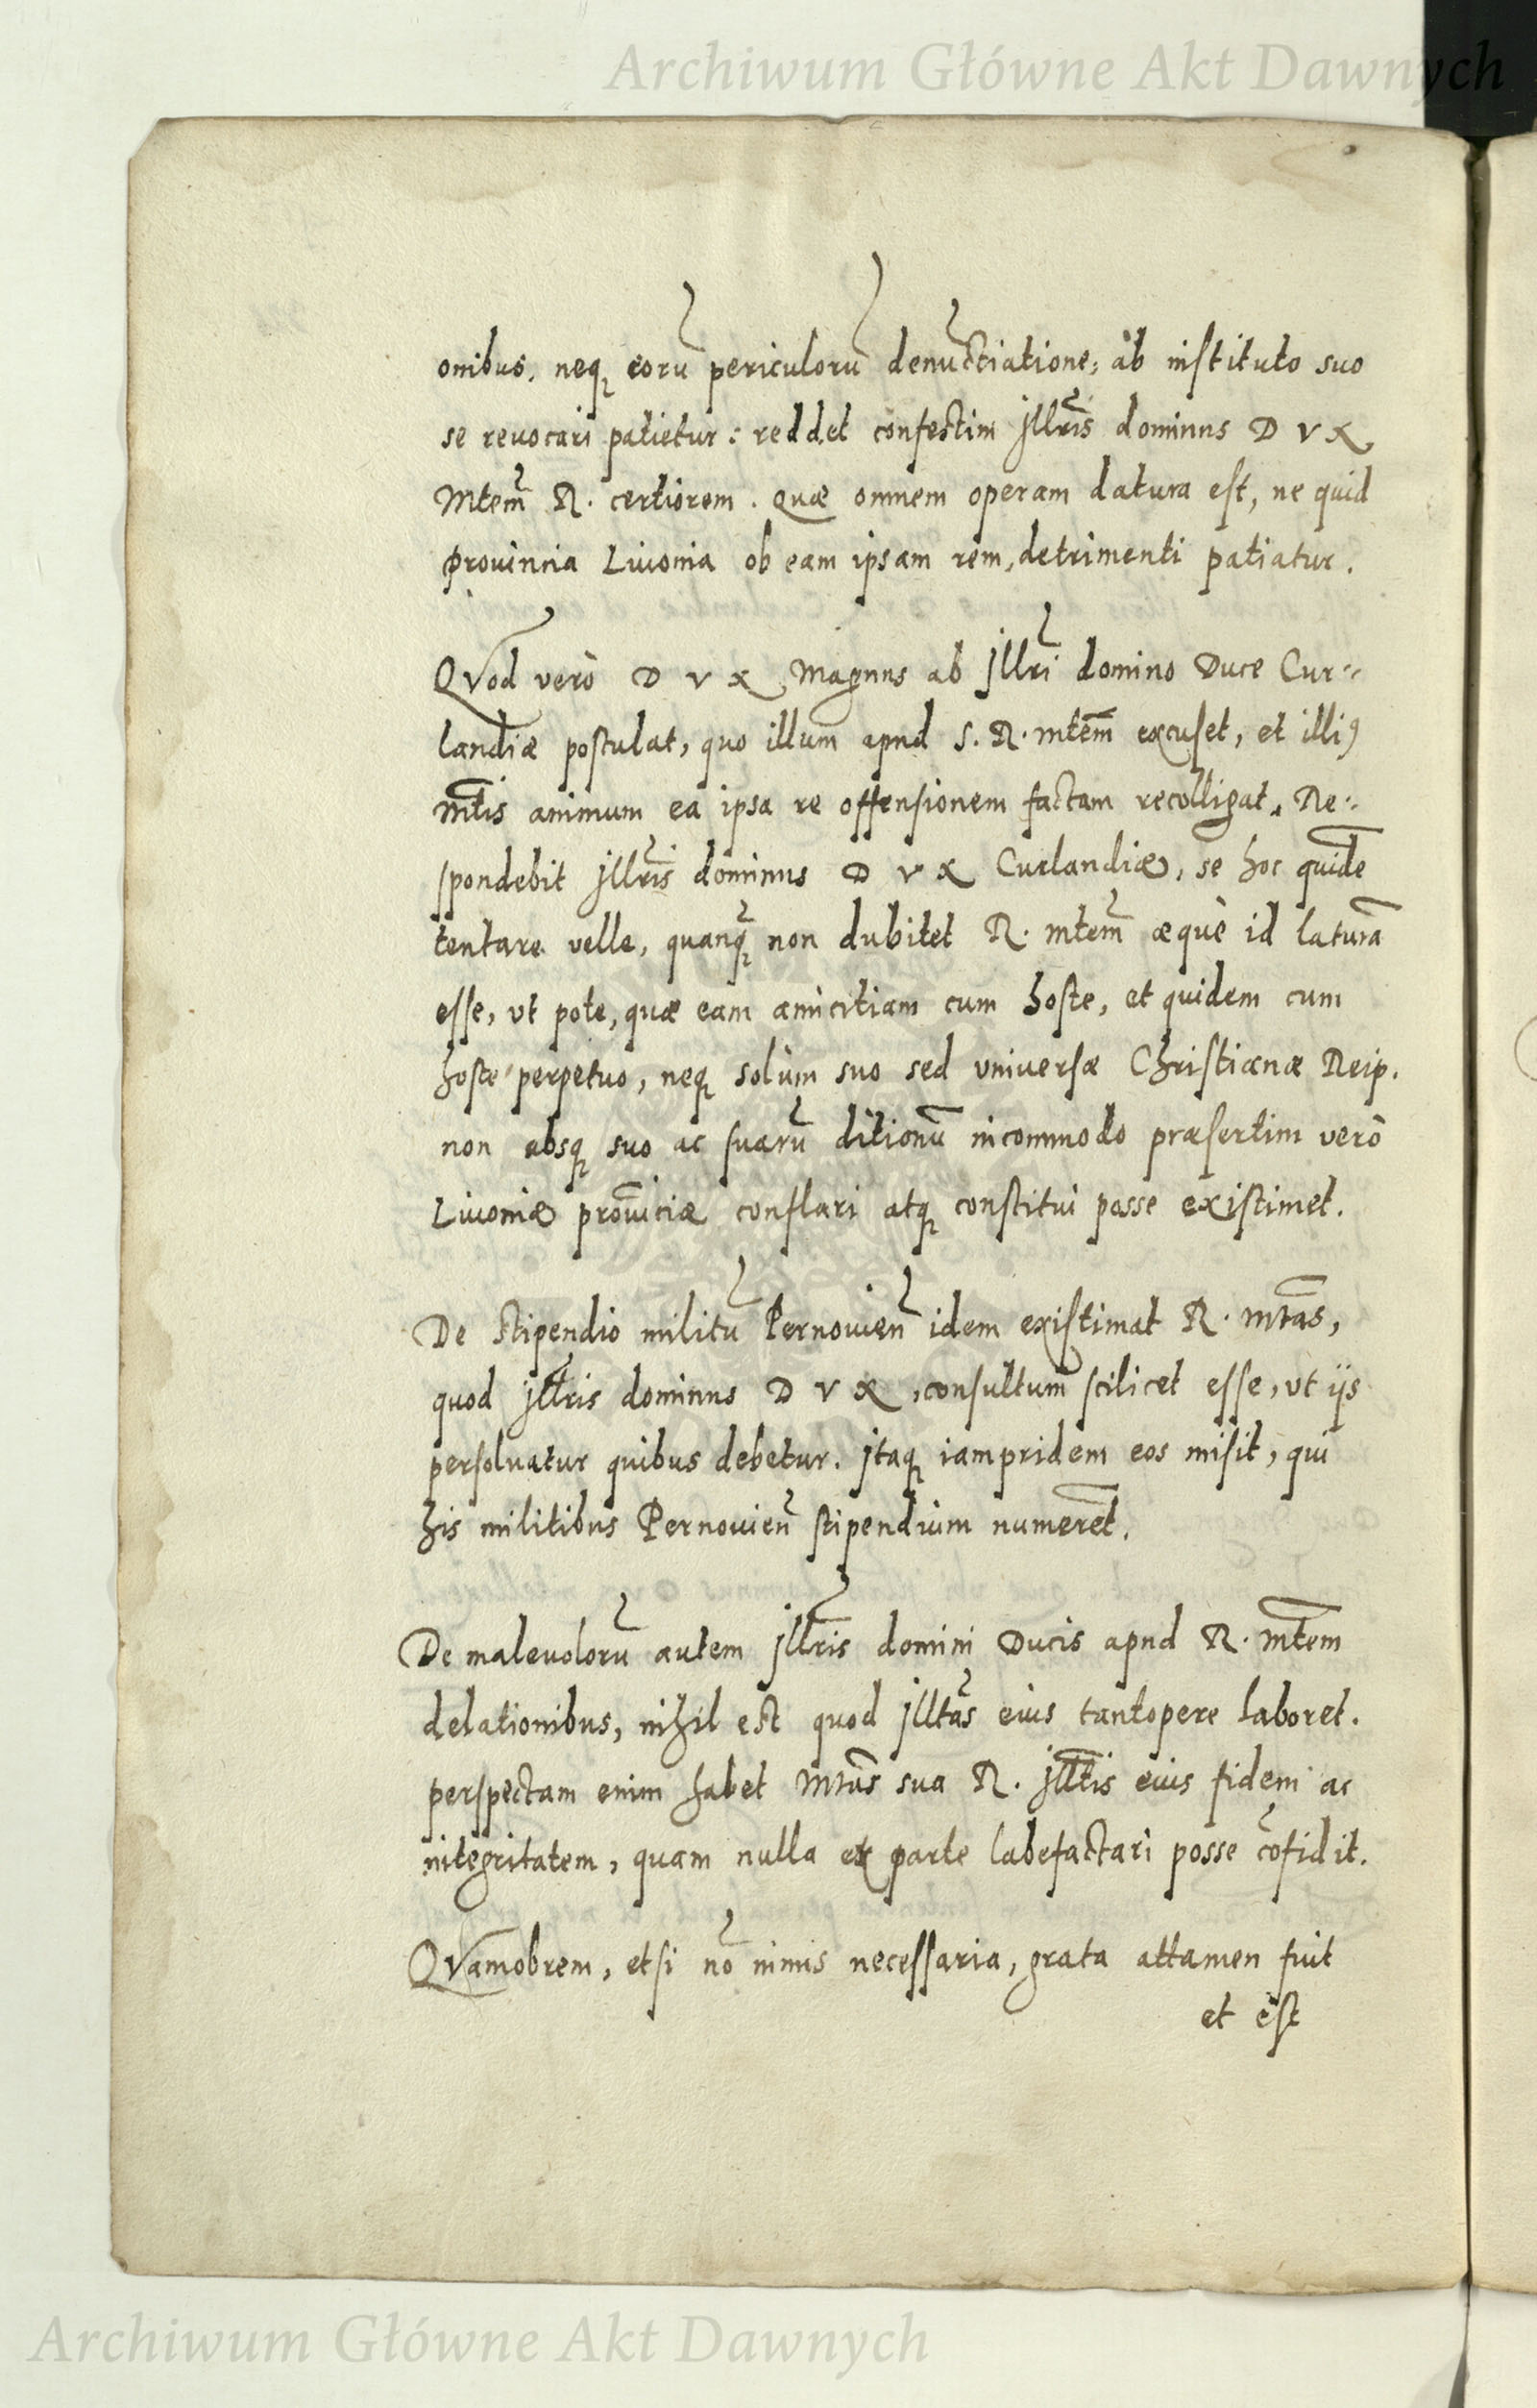 Archiwum Główne Akt Dawnych
onibus, neqꝫ eorū periculorū denūctiatione, ab instituto suo
se reuocari patietur: reddet confestim Jllr̃is dominus D V X
Mtem̃ R. certiorem. Quæ omnem operam datura est, ne quid
prouincia Liuonia ob eam ipsam rem, detrimenti patiatur.
QVod verò D V X Magnus ab Jllr̃i domino Duce Cur-
landiæ postulat, quo illum apud S. R. mtem̃ excuset, et illiꝰ
mt̃is animum ea ipsa re offensionem factam recolligat. Re-
spondebit Jllr̃is dominus D V X Curlandiæ, se hoc quidē
tentare velle, quanq̃ꝫ non dubitet R. mtem̃ æquè id laturā
esse, vt pote, quæ eam amicitiam cum hoste, et quidem cum
hoste perpetuo, neqꝫ solùm suo sed vniuersæ Christianæ Reip.
non absqꝫ suo ac suarū ditionū incommodo præsertim verò
Liuoniæ prouĩciæ conflari atqꝫ constitui posse existimet.
De stipendio militū Pernouieñ idem existimat R. mtas̃,
quod Jllr̃is dominus D V X, consultum scilicet esse, vt ijs
persoluatur quibus debetur. Jtaqꝫ iampridem eos misit, qui
his militibus Pernouieñ stipendium numerẽt.
De maleuolorū autem Jllr̃is domini Ducis apud R. mt̃em
delationibus, nihil est quod Jlltas̃ eius tantopere laboret.
perspectam enim habet Mtas̃ sua R. Jllt̃is eius fidem ac
integritatem, quam nulla ex parte labefactari posse cõfidit.
QVamobrem, etsi nō nimis necessaria, grata attamen fuit
et est
Archiwum Główne Akt Dawnych